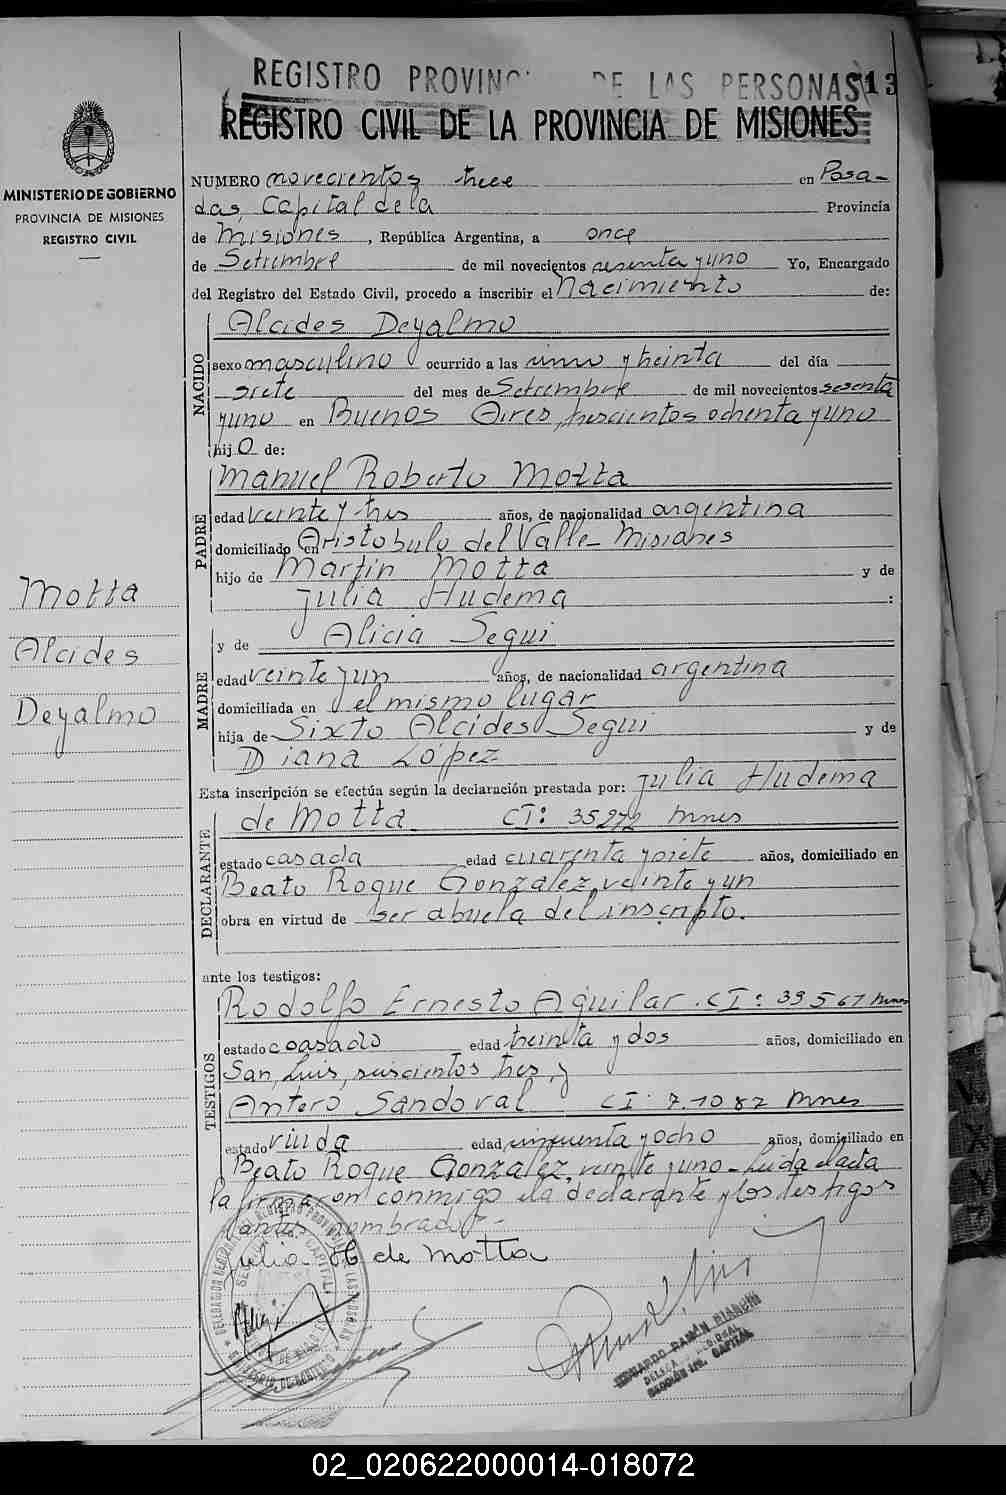 REGISTRO PROVINC DE LAS PERSONAS 13
REGISTRO CIVIL DE LA PROVINCIA DE MISIONES
MINISTERIO DE GOBIERNO
PROVINCIA DE MISIONES
REGISTRO CIVIL
NUMERO novecientos trece en Posa-
das, Capital de la Provincia
de Misiones, República Argentina, a once
de Setiembre de mil novecientos sesenta y uno Yo, Encargado
del Registro del Estado Civil, procedo a inscribir el Nacimiento de:
NACIDO
Alcides Deyalmo
sexo masculino ocurrido a las uno y treinta del día
siete del mes de Setiembre de mil novecientos sesenta
y uno en Buenos Aires, trescientos ochenta y uno
hijo de:
PADRE
Manuel Roberto Motta
edad veinte y tres años, de nacionalidad argentina
domiciliado en Aristobulo del Valle - Misiones
hijo de Martin Motta y de
Julia Hudema :
Motta
Alcides
Deyalmo
MADRE
y de Alicia Segui
edad veinte y un años, de nacionalidad argentina
domiciliada en el mismo lugar
hija de Sixto Alcides Segui y de
Diana López
Esta inscripción se efectúa según la declaración prestada por: Julia Hudema
DECLARANTE
de Motta CI: 35272 Mnes
estado casada edad cuarenta y siete años, domiciliado en
Beato Roque González, veinte y un
obra en virtud de ser abuela del inscripto.
ante los testigos:
TESTIGOS
Rodolfo Ernesto Aguilar. CI: 39567 Mnes
estado casado edad treinta y dos años, domiciliado en
San Luis, seiscientos tres, y
Antero Sandoval CI: 7.1082 Mnes
estado viuda edad cincuenta y ocho años, domiciliado en
Beato Roque González, veinte y uno - Leida el acta
la firmaron conmigo la declarante y los testigos
antes nombrados -
Julia H de Motta
EDUARDO RAMÓN BIANCHI
SECCIÓN 1ra. CAPITAL
02_020622000014-018072